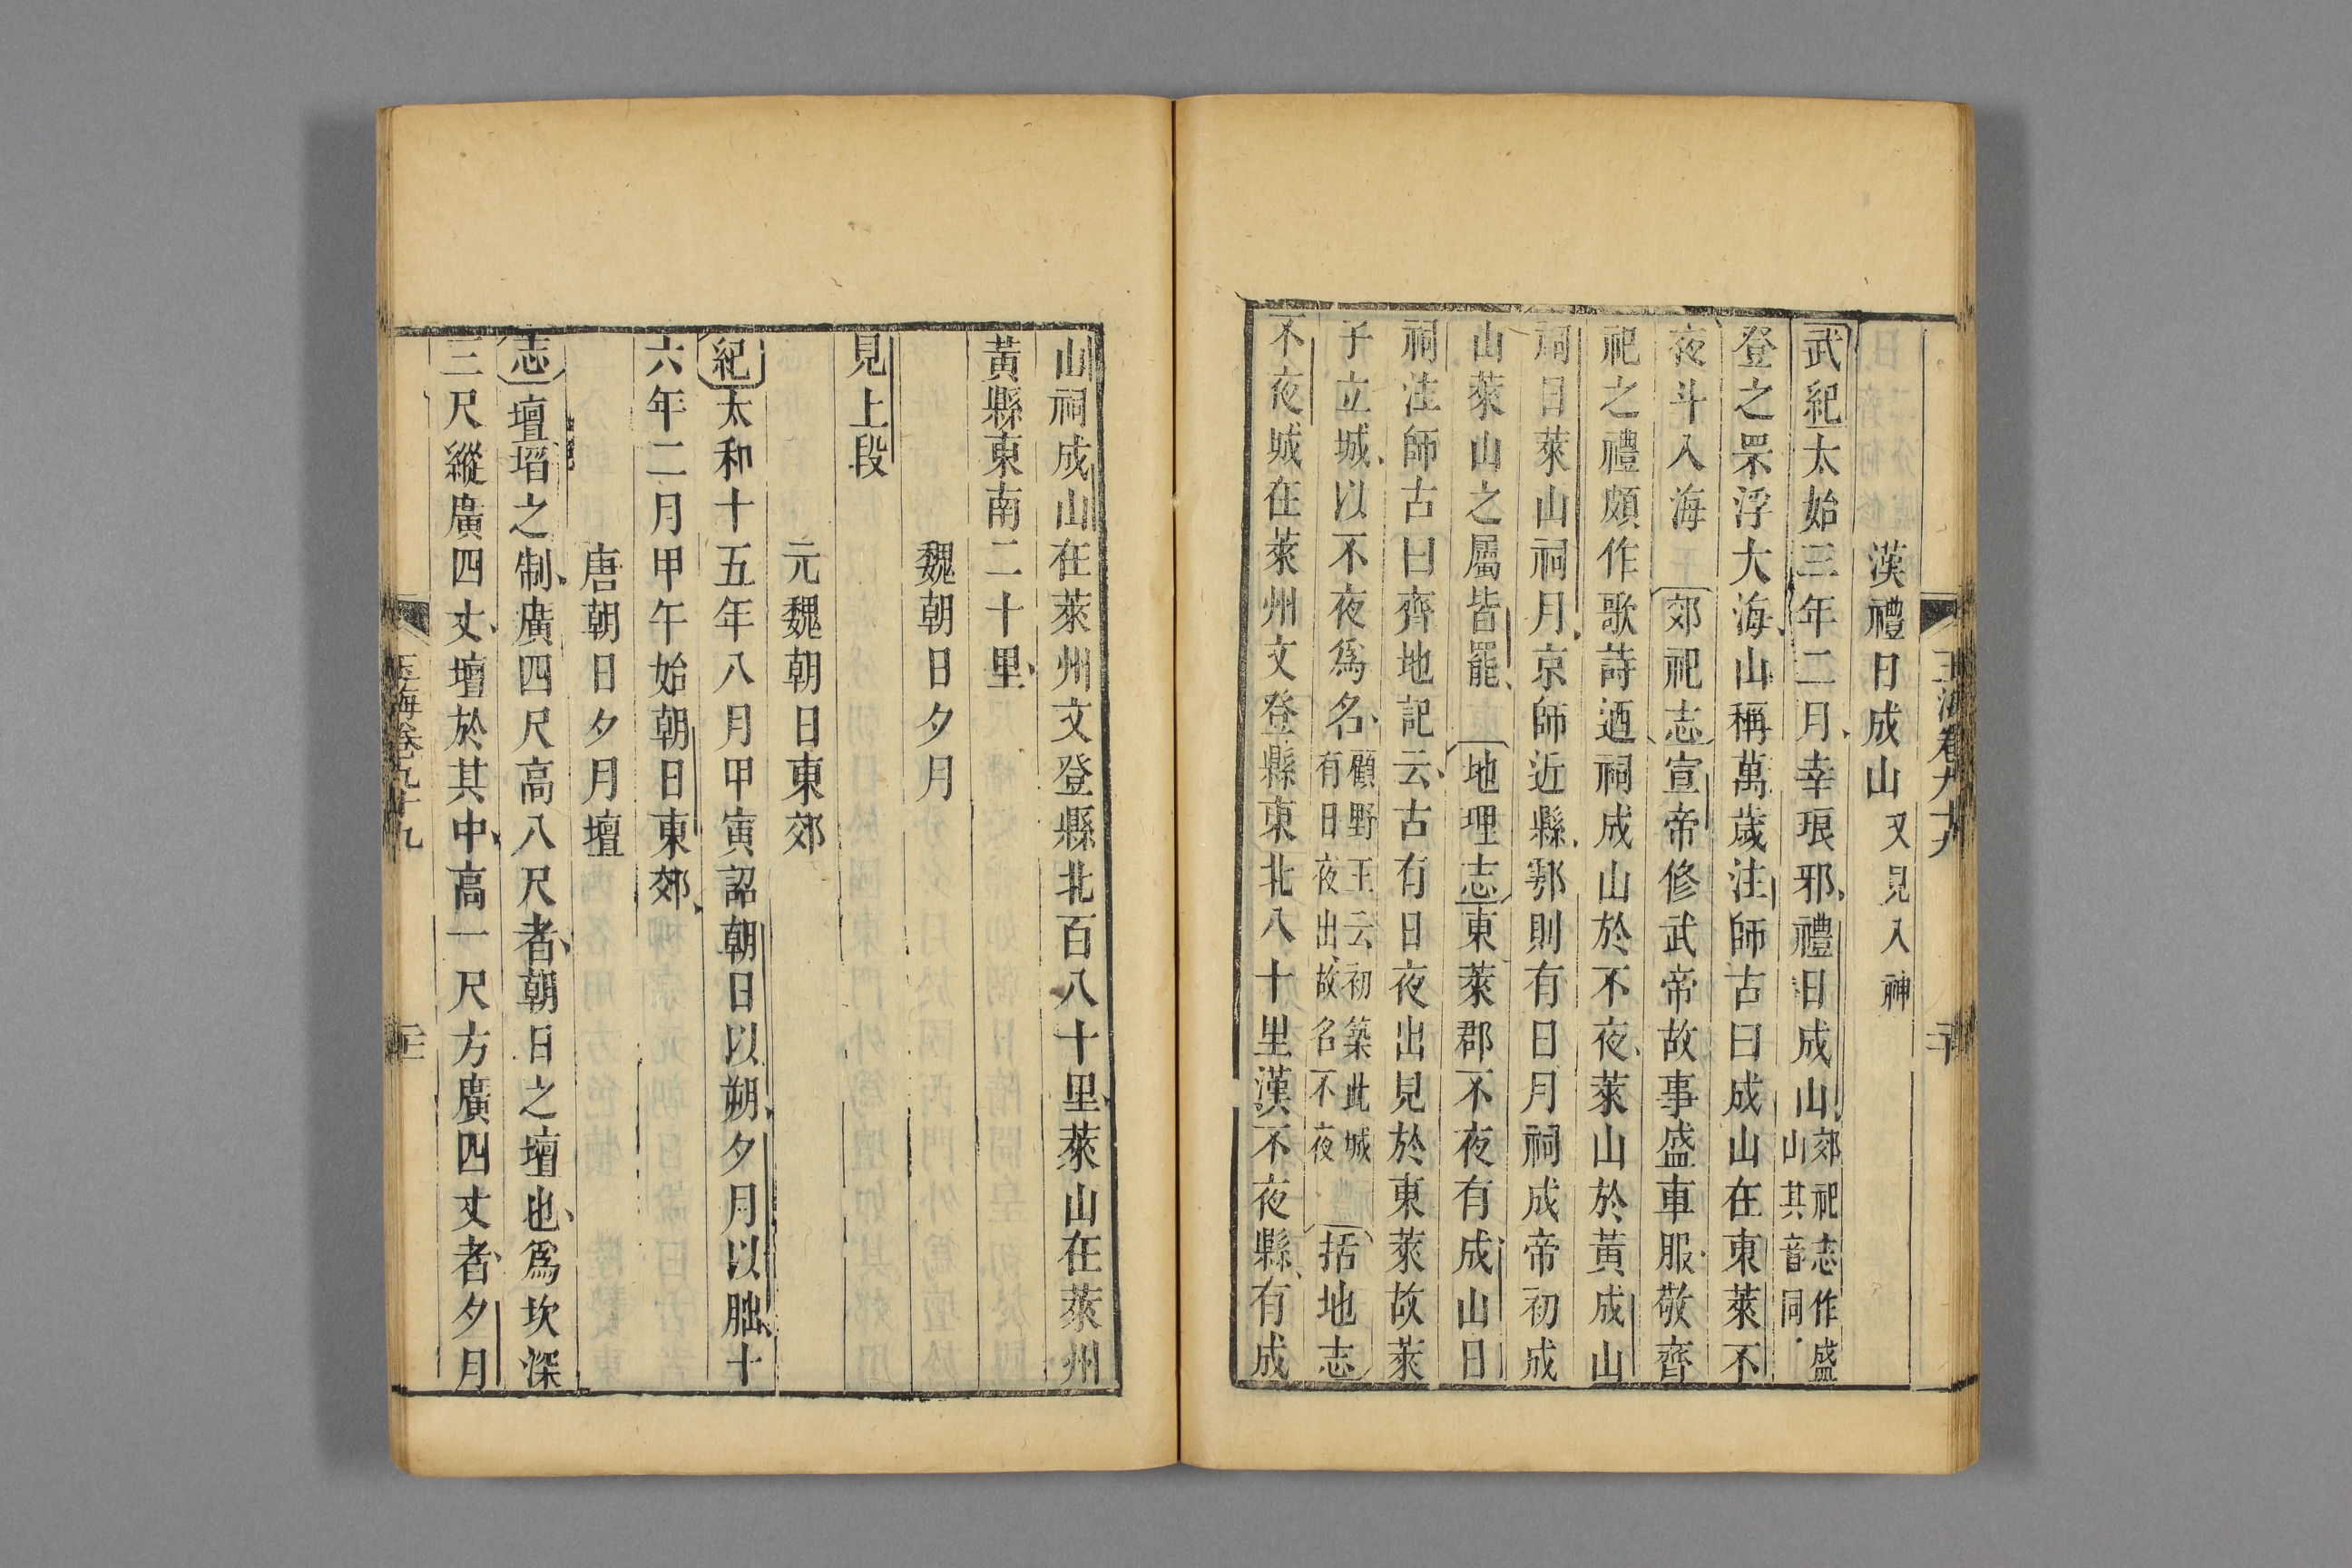 漢禮日成山又見入神
武紀太始三年二月幸琅邪禮日成山郊祀志作盛山其音同
登之罘浮大海山稱萬歲注師古曰成山在東萊不
夜斗入海郊祀志宣帝修武帝故事盛車服敬齊
祀之禮頗作歌詩迺祠成山於不夜萊山於黃成山
祠日萊山祠月京師近縣鄠則有日月祠成帝初成
山萊山之屬皆罷地理志東萊郡不夜有成山日
祠注師古曰齊地記云古有日夜出見於東萊故萊
子立城以不夜爲名顧野王云初築此城有日夜出故名不夜括地志
不夜城在萊州文登縣東北八十里漢不夜縣有成
山祠成山在萊州文登縣北百八十里萊山在萊州
黃縣東南二十里
魏朝日夕月
見上段
元魏朝日東郊
紀太和十五年八月甲寅詔朝日以朔夕月以朏十
六年二月甲午始朝日東郊
唐朝日夕月壇
志壇壝之制廣四尺高八尺者朝日之壇也爲坎深
三尺縱廣四丈壇於其中高一尺方廣四丈者夕月
玉海卷九十九